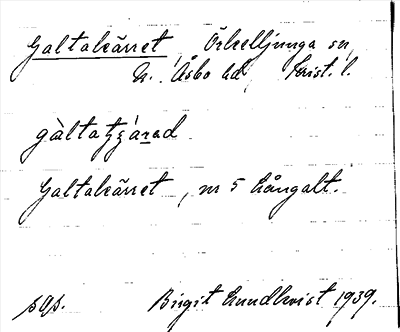 Galtakärret, Örkelljunga sn,
N. Åsbo hd, Krist. l.
gàltatʒárad
Galtakärret, nr 5 Långalt.
pap. Birgit Lundkvist 1939.